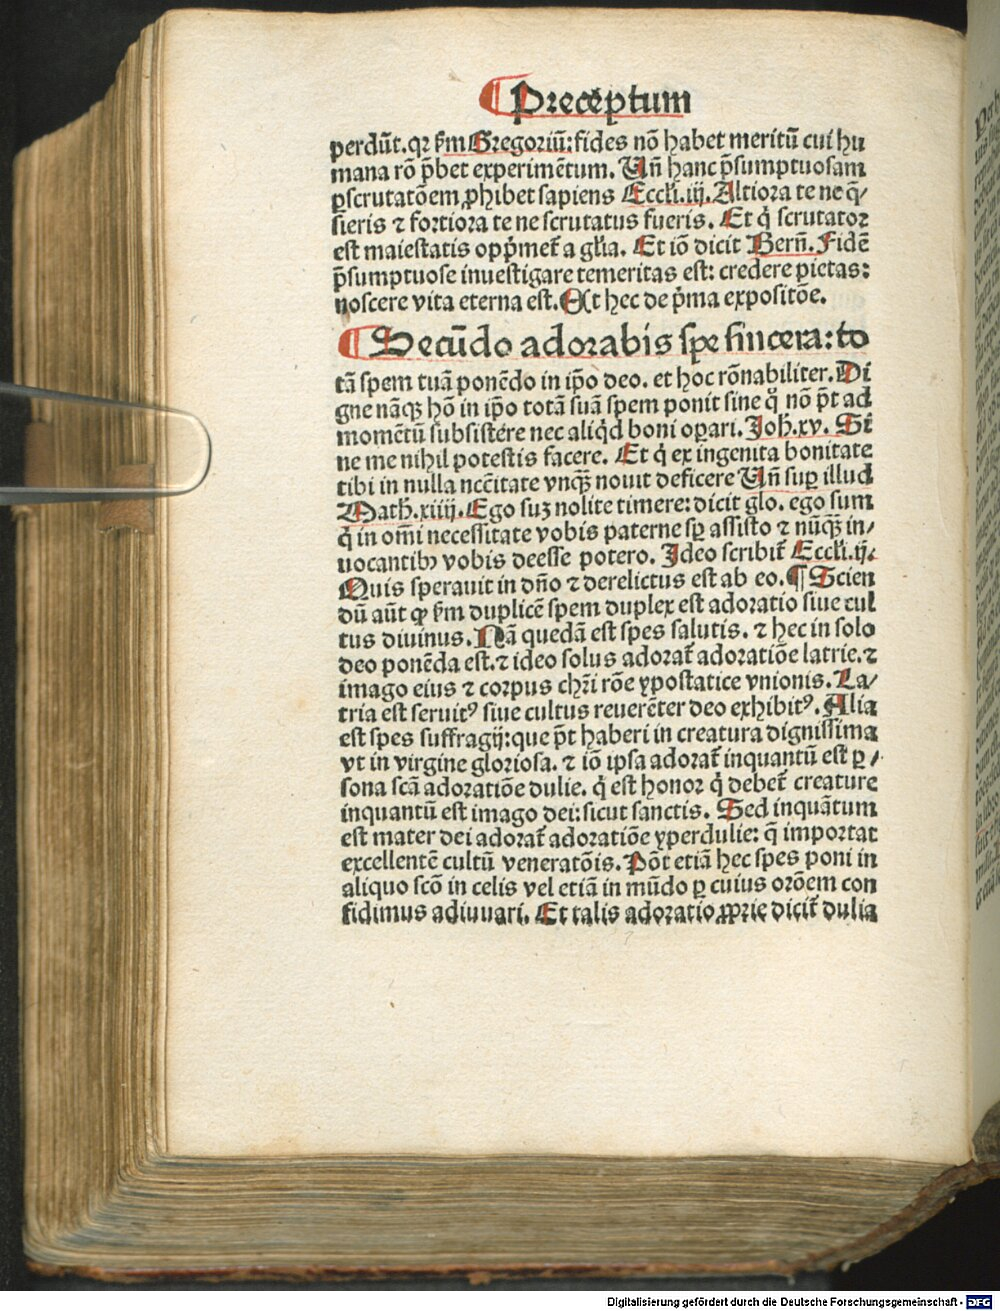 Preceptum
perdūt. qꝛ ẜm Gregoriū: fides nō habet meritū cui hu
mana rō p̄bet experimētum. Vñ hanc p̄sumptuosam
ꝑscrutatōem ꝓhibet sapiens Eccli. iij. Altiora te ne q̄/
sieris ⁊ fortiora te ne scrutatus fueris. Et q̇ scrutator
est maiestatis opp̄met̄ a gl̄ia. Et iō dicit Bern̄. Fidē
p̄sumptuose inuestigare temeritas est: credere pietas:
noscere vita eterna est. Et hec de p̄ma expositōe.
Secūdo adorabis spe sincera: to
tā spem tuā ponēdo in ip̄o deo. et hoc rōnabiliter. Di
gne nāqꝫ hō in ip̄o totā suā spem ponit sine q̇ nō p̄t ad
momētū subsistere nec aliq̇d boni oꝑari. Joh̄. xv. Si
ne me nihil potestis facere. Et q̇ ex ingenita bonitate
tibi in nulla ncc̄itate vnqꝫ nouit deficere Vñ suꝑ illud
Math̄. xiiij. Ego suꝫ nolite timere: dicit glo. ego sum
q̇ in om̄i necessitate vobis paterne sꝑ assisto ⁊ nūqꝫ in/
uocantibꝰ vobis deesse potero. Ideo scribit̄ Eccli. ij.
Quis sperauit in dño ⁊ derelictus est ab eo. ¶ Scien
dū aūt ꝙ ẜm duplicē spem duplex est adoratio siue cul
tus diuinus. Nā quedā est spes salutis. ⁊ hec in solo
deo ponēda est. ⁊ ideo solus adorat̄ adoratiōe latrie. ⁊
imago eius ⁊ corpus chr̄i rōe ypostatice vnionis. La/
tria est seruitꝰ siue cultus reuerēter deo exhibitꝰ. Alia
est spes suffragij: que p̄t haberi in creatura dignissima
vt in virgine gloriosa. ⁊ iō ipsa adorat̄ inquantū est ꝑ/
sona scā adoratiōe dulie. q̇ est honor q̇ debet̄ creature
inquantū est imago dei: sicut sanctis. Sed inquātum
est mater dei adorat̄ adoratiōe yperdulie: q̄ importat
excellentē cultū veneratōis. Pōt etiā hec spes poni in
aliquo scō in celis vel etiā in mūdo ꝑ cuius orōem con
fidimus adiuuari. Et talis adoratio ꝓprie dicit̄ dulia
Digitalisierung gefördert durch die Deutsche Forschungsgemeinschaft - DFG